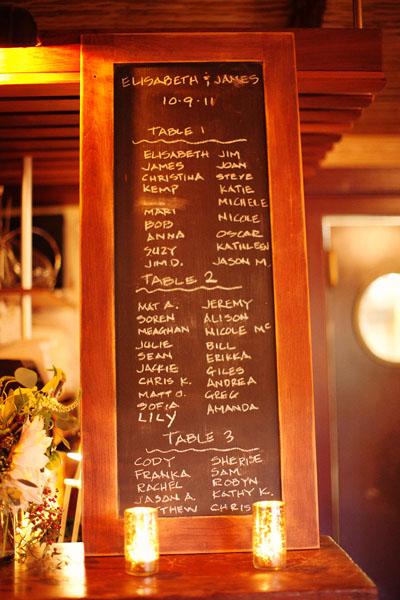 ELISABETH & JAMES
10-9-11
TABLE 1
ELISABETH JIM
JAMES JOAN
CHRISTINA STEVE
KEMP KATIE
MICHELE
MARI NICOLE
BOB OSCAR
ANNA KATHLEEN
SUZY JASON M.
JIM D.
TABLE 2
MAT A. JEREMY
SOREN ALISON
MEAGHAN NICOLE MC
JULIE BILL
SEAN ERIKKA
JACKIE GILES
CHRIS K. ANDREA
MATT O. GREG
SOFIA AMANDA
LILY
TABLE 3
CODY SHERISE
FRANKA SAM
RACHEL ROBYN
JASON A. KATHY K.
CHRIS